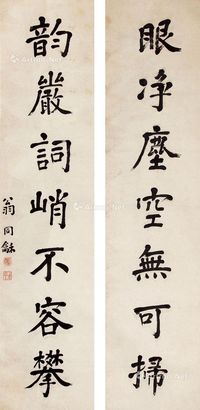 眼净塵空無可掃
韵嚴詞峭不容攀
翁同龢